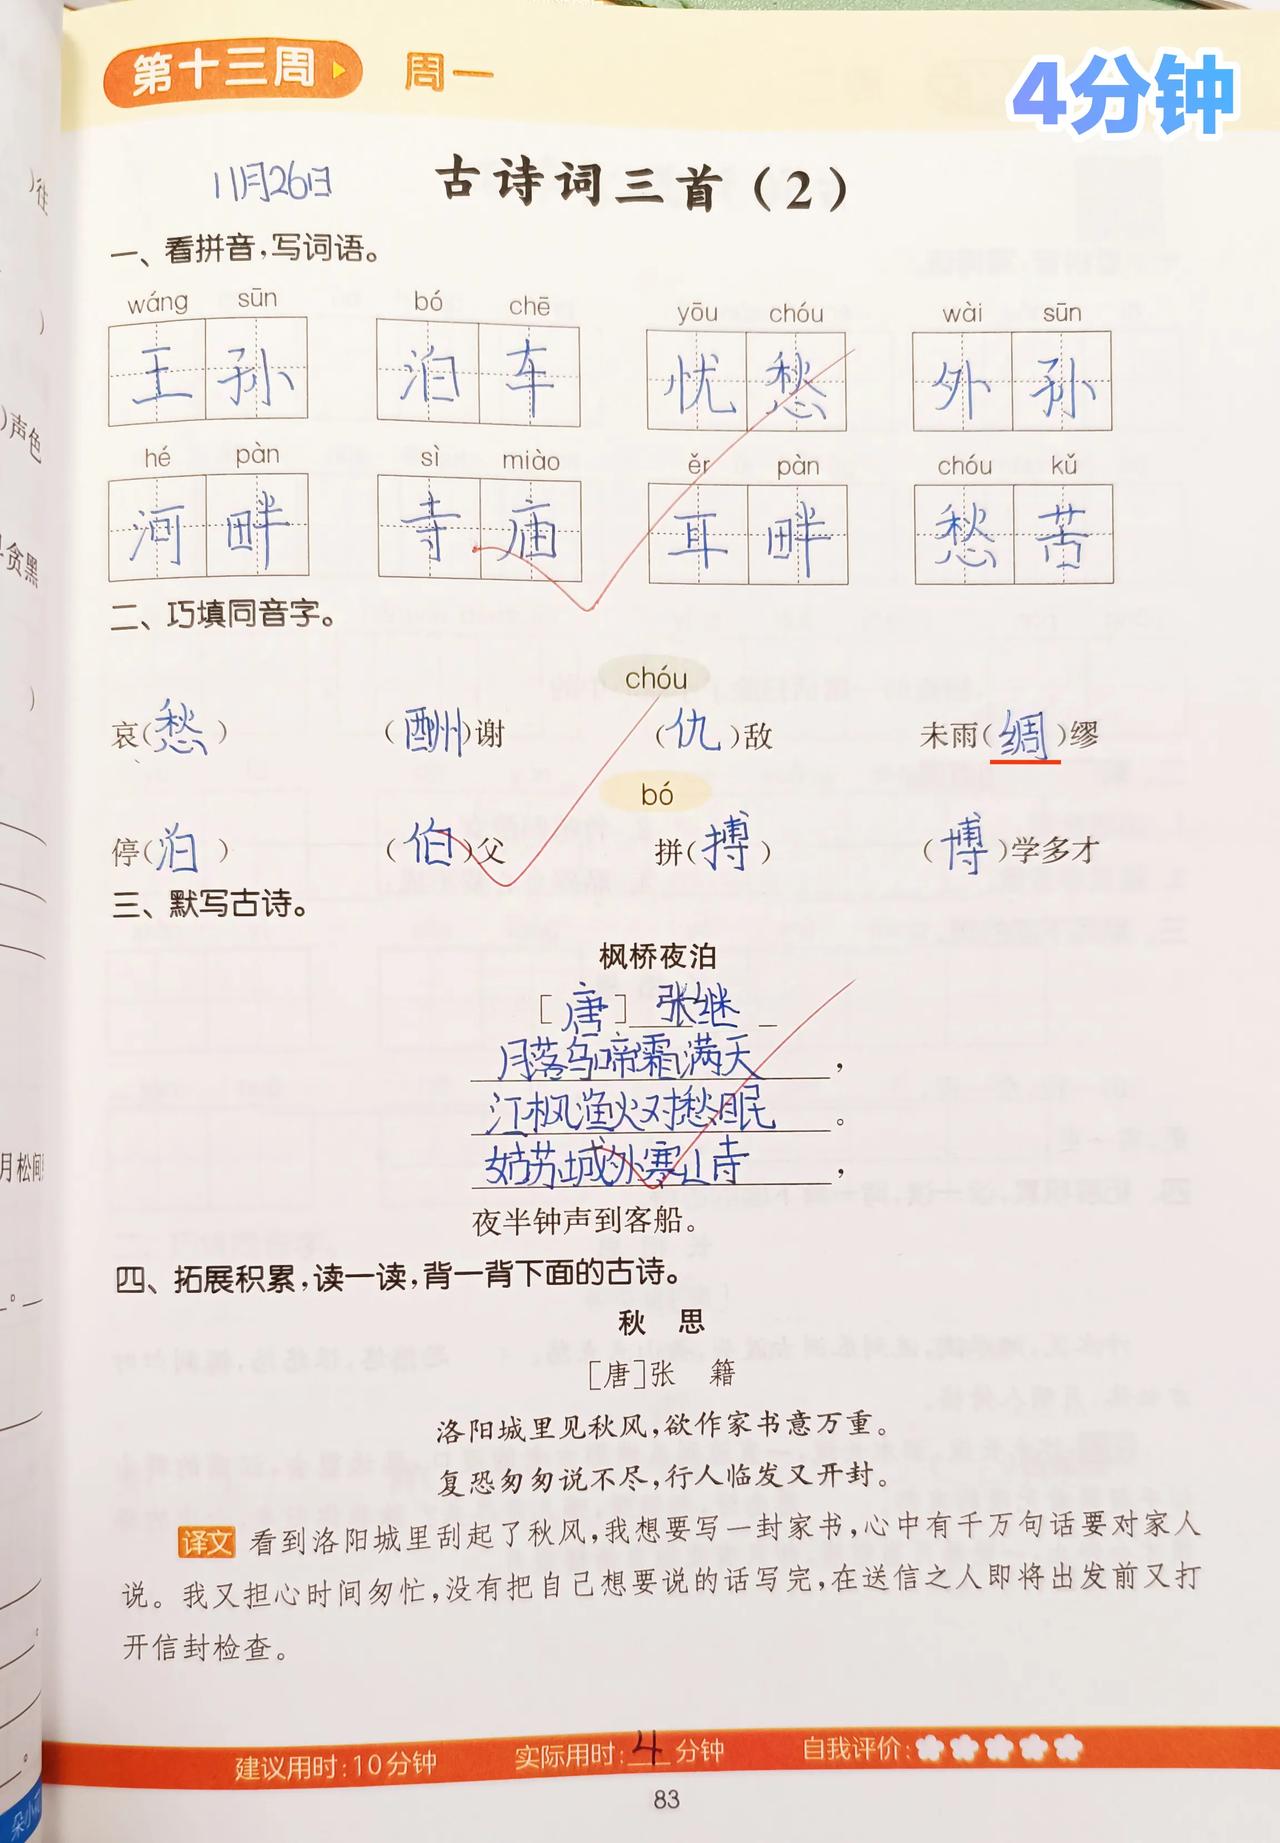 第十三周 周一
4分钟
11月26日
古诗词三首（2）
一、看拼音，写词语。
wáng sūn bó chē yōu chóu wài sūn
王孙 泊车 忧愁 外孙
hé pàn sì miào ěr pàn chóu kǔ
河畔 寺庙 耳畔 愁苦
二、巧填同音字。
chóu
哀（愁） （酬）谢 （仇）敌 未雨（绸）缪
bó
停（泊） （伯）父 拼（搏） （博）学多才
三、默写古诗。
枫桥夜泊
［唐］张继
月落乌啼霜满天，
江枫渔火对愁眠。
姑苏城外寒山寺，
夜半钟声到客船。
四、拓展积累，读一读，背一背下面的古诗。
秋 思
［唐］张 籍
洛阳城里见秋风，欲作家书意万重。
复恐匆匆说不尽，行人临发又开封。
译文 看到洛阳城里刮起了秋风，我想要写一封家书，心中有千万句话要对家人
说。我又担心时间匆忙，没有把自己想要说的话写完，在送信之人即将出发前又打
开信封检查。
建议用时：10分钟 实际用时：4分钟 自我评价：
83
）声色
贪黑
月松间